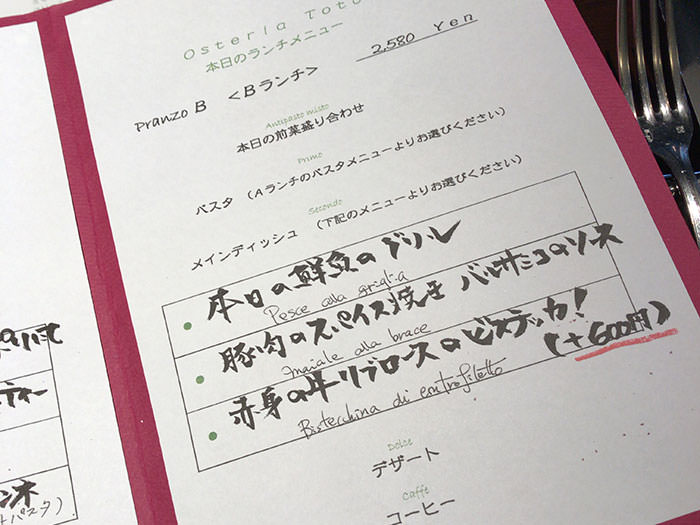 Osteria Toto
本日のランチメニュー
2,580 Yen
Pranzo B <Bランチ>
Antipasto misto
本日の前菜盛り合わせ
Primo
パスタ (Aランチのパスタメニューよりお選びください)
Secondo
メインディッシュ (下記のメニューよりお選びください)
本日の鮮魚のグリル
Pesce alla griglia
豚肉のスパイス焼き バルサミコのソース
maiale alla brace
赤身の牛リブロースのビステッカ!
(+600円)
Bistecchina di entrofiletto
Dolce
デザート
Caffè
コーヒー
パスタ)